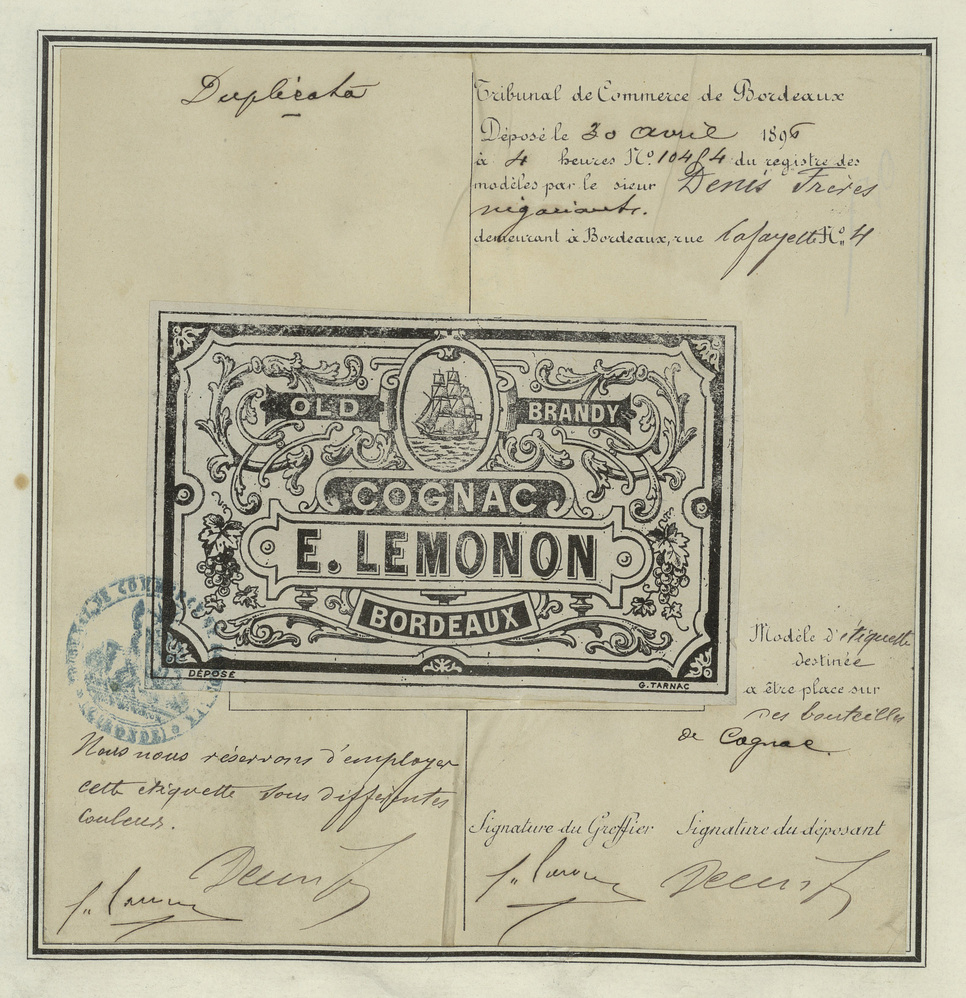 Duplicata
Tribunal de Commerce de Bordeaux
Déposé le 30 avril 1896
à 4 heures N° du registre des
modèles par le sieur Denis Frères
négociants.
demeurant à Bordeaux, rue Lafayette N° 4
OLD BRANDY
COGNAC
E. LEMONON
BORDEAUX
DÉPOSÉ
G. TARNAC
Modèle d'étiquette
destinée
a être place sur
des bouteilles
de Cognac.
TRIBUNAL DE COMMERCE
(GIRONDE)
Nous nous réservons d'employer
cette etiquette sous differentes
couleurs.
Signature du Greffier Signature du déposant
Denis Denis